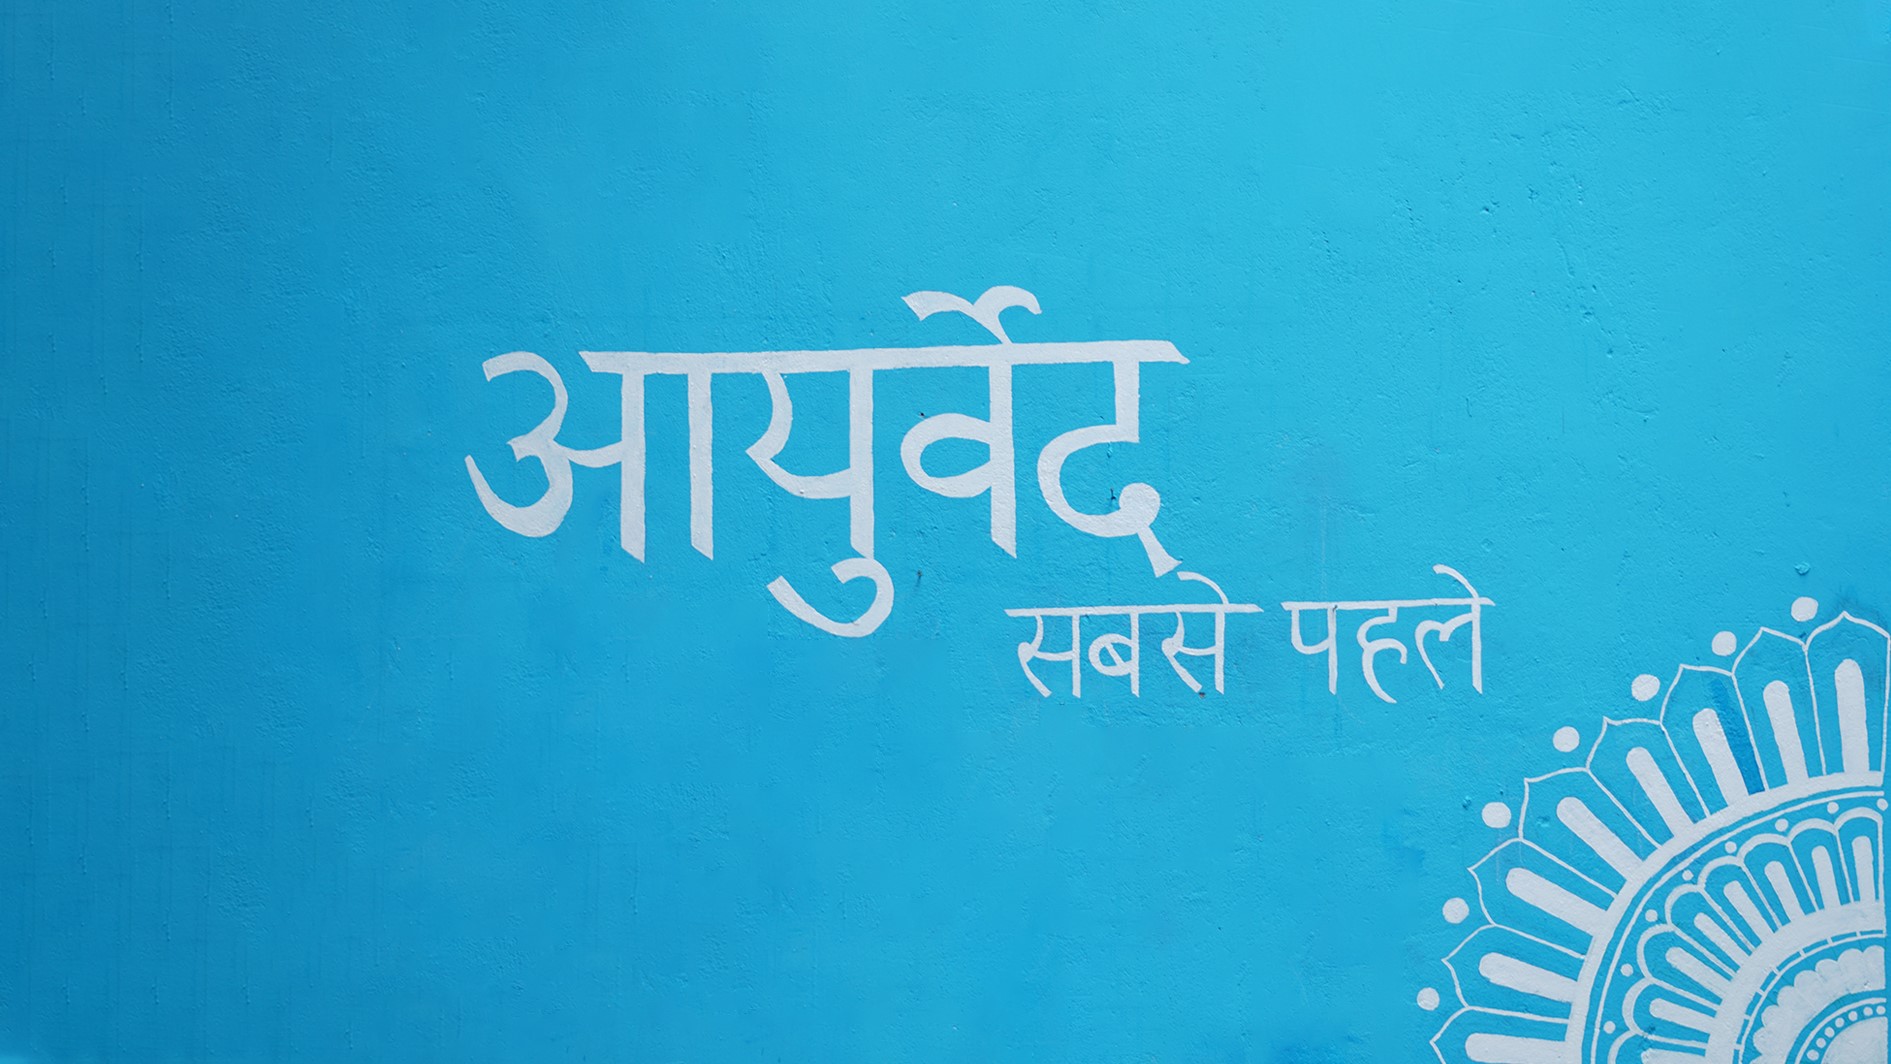 आयुर्वेद
सबसे पहले